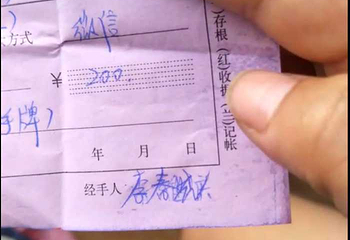 方式 微信
¥ 200
手牌)
年 月 日
经手人
)存根 (红)收据 (三)记帐